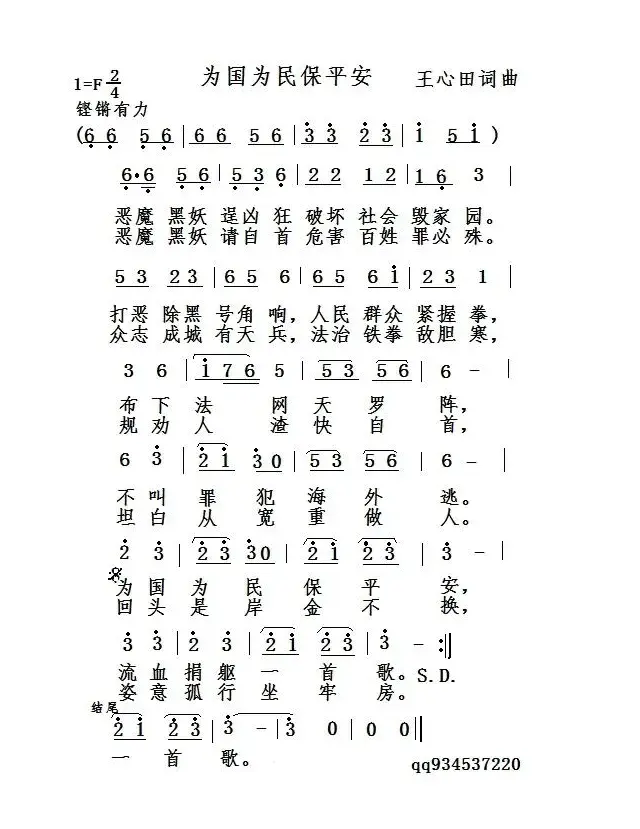 为国为民保平安 王心田词曲
1=F 2/4
铿锵有力
(6 6 5 6 | 6 6 5 6 | 3 3 2 3 | 1 5 1 )
6·6 5 6 | 5 3 6 | 2 2 1 2 | 1 6 3 |
恶魔 黑妖 逞凶 狂 破坏 社会 毁家 园。
恶魔 黑妖 请自 首 危害 百姓 罪必 殊。
5 3 2 3 | 6 5 6 | 6 5 6 1 | 2 3 1 |
打恶 除黑 号角 响，人民 群众 紧握 拳，
众志 成城 有天 兵，法治 铁拳 敌胆 寒，
3 6 | 1 7 6 5 | 5 3 5 6 | 6 - |
布 下 法 网 天 罗 阵，
规 劝 人 渣 快 自 首，
6 3 | 2 1 3 0 | 5 3 5 6 | 6 - |
不 叫 罪 犯 海 外 逃。
坦 白 从 宽 重 做 人。
2 3 | 2 3 3 0 | 2 1 2 3 | 3 - |
为 国 为 民 保 平 安，
回 头 是 岸 金 不 换，
3 3 | 2 3 | 2 1 2 3 | 3 - :||
流 血 捐 躯 一 首 歌。S.D.
姿 意 孤 行 坐 牢 房。
结尾
2 1 2 3 | 3 - | 3 0 | 0 0 ||
一 首 歌。
qq934537220